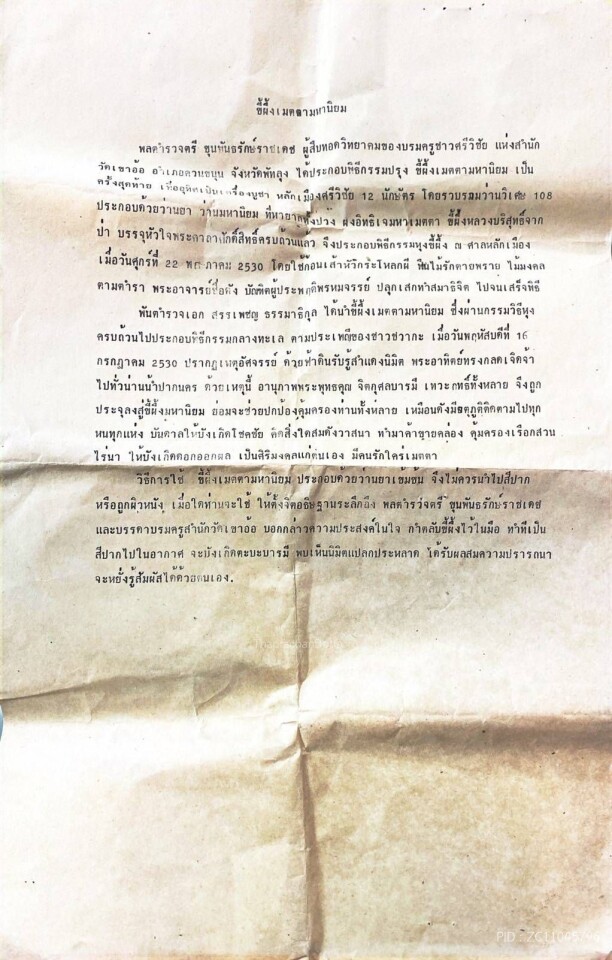 ขี้ผึ้งเมตตามหานิยม
พลตำรวจตรี ขุนพันธรักษ์ราชเดช ผู้สืบทอดวิทยาคมของบรมครูชาวศรีวิชัย แห่งสำนัก
วัดเขาอ้อ อำเภอควนขนุน จังหวัดพัทลุง ได้ประกอบพิธีกรรมปรุง ขี้ผึ้งเมตตามหานิยม เป็น
ครั้งสุดท้าย เพื่ออุทิศเป็นเครื่องบูชา หลักเมืองศรีวิชัย 12 นักษัตร โดยรวบรวมว่านวิเศษ 108
ประกอบด้วยว่านยา ว่านมหานิยม ที่หายาก ผงอิทธิเจมหาเมตตา ขี้ผึ้งหลวงบริสุทธิ์จาก
ป่า บรรจุหัวใจพระคาถาศักดิ์สิทธิ์ครบถ้วนแล้ว จึงประกอบพิธีกรรมหุงขี้ผึ้ง ณ ศาลหลักเมือง
เมื่อวันศุกร์ที่ 22 พฤษภาคม 2530 โดยใช้ก้อนเส้าหัวกระโหลกผี ฟืนไม้รักตายพราย ไม้มงคล
ตามตำรา พระอาจารย์ชื่อดัง บัณฑิตผู้ประพฤติพรหมจรรย์ ปลุกเสกทำสมาธิจิต ไปจนเสร็จพิธี
พันตำรวจเอก สรรเพชญ ธรรมาธิกุล ได้นำขี้ผึ้งเมตตามหานิยม ซึ่งผ่านกรรมวิธีหุง
ครบถ้วนไปประกอบพิธีกรรมกลางทะเล ตามประเพณีของชาวชวากะ เมื่อวันพฤหัสบดีที่ 16
กรกฎาคม 2530 ปรากฏเหตุอัศจรรย์ ด้วยฟ้าดินรับรู้สำแดงนิมิต พระอาทิตย์ทรงกลดเจิดจ้า
ไปทั่วน่านน้ำปากนคร ด้วยเหตุนี้ อานุภาพพระพุทธคุณ จิตกุศลบารมี เทวะฤทธิ์ทั้งหลาย จึงถูก
ประจุลงสู่ขี้ผึ้งมหานิยม ย่อมจะช่วยปกป้องคุ้มครองท่านทั้งหลาย เหมือนดังมีจตุภูติติดตามไปทุก
หนทุกแห่ง บันดาลให้บังเกิดโชคชัย คิดสิ่งใดสมดังวาสนา ทำมาค้าขายคล่อง คุ้มครองเรือกสวน
ไร่นา ให้บังเกิดดอกออกผล เป็นศิริมงคลแก่ตนเอง มีคนรักใคร่เมตตา
วิธีการใช้ ขี้ผึ้งเมตตามหานิยม ประกอบด้วยว่านยาเข้มข้น จึงไม่ควรนำไปสีปาก
หรือถูกผิวหนัง เมื่อใดท่านจะใช้ ให้ตั้งจิตอธิษฐานระลึกถึง พลตำรวจตรี ขุนพันธ์รักษ์ราชเดช
และบรรดาบรมครูสำนักวัดเขาอ้อ บอกกล่าวความประสงค์ในใจ กำตลับขี้ผึ้งไว้ในมือ ทำทีเป็น
สีปากไปในอากาศ จะบังเกิดตะบะบารมี พบเห็นนิมิตแปลกประหลาด ได้รับผลสมความปรารถนา
จะหยั่งรู้สัมผัสได้ด้วยตนเอง.